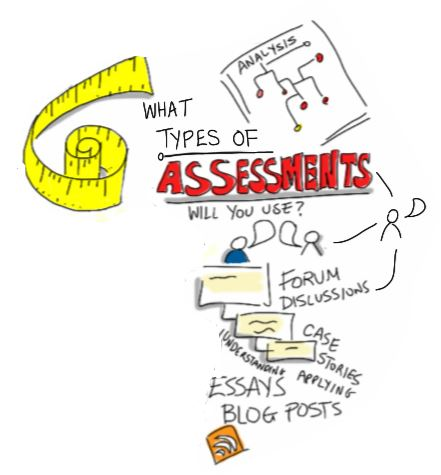 ANALYSIS
WHAT
TYPES OF
ASSESSMENTS
WILL YOU USE?
FORUM
DISLUSSIONS
CASE
STORIES
UNDERSTANDING
APPLYING
ESSAYS
BLOG POSTS